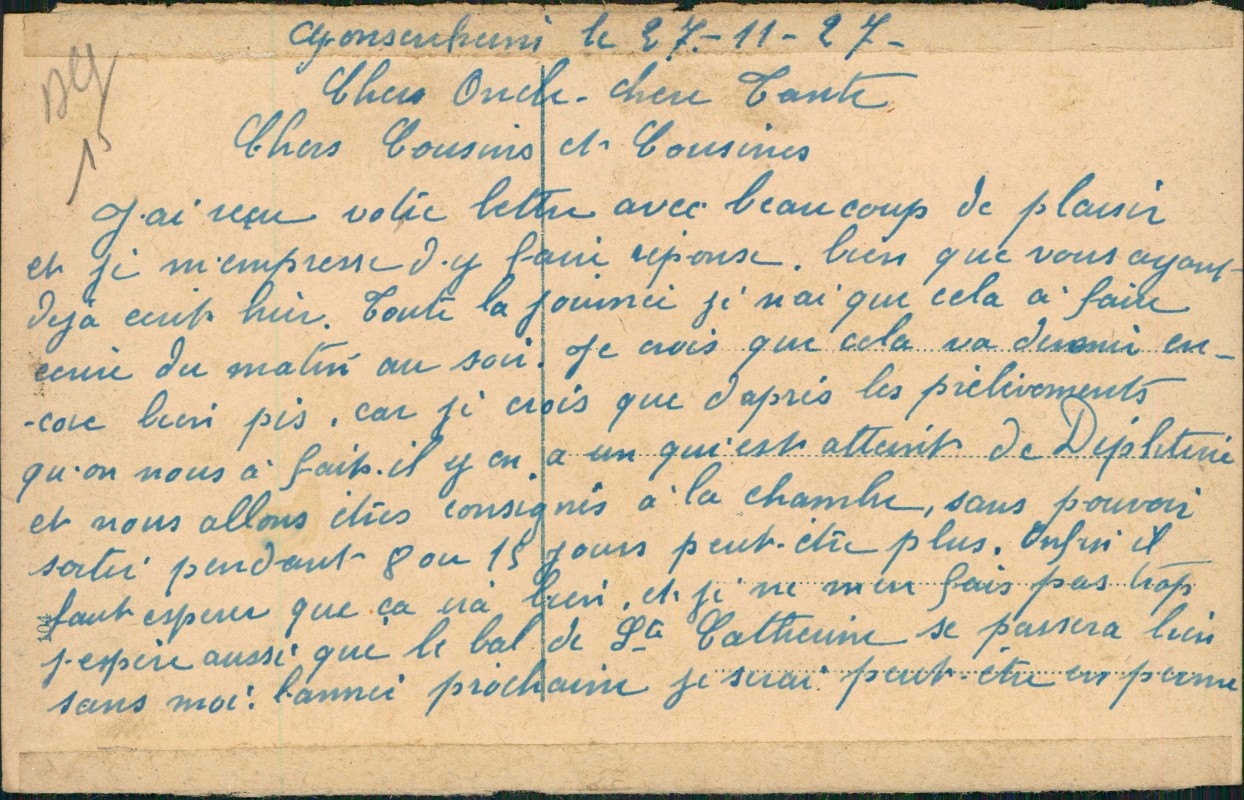 Gonsenheim le 27-11-27-
Chers Oncle. chère Tante
Chers Cousins et Cousines
J'ai reçu votre lettre avec beaucoup de plaisir
et je m'empresse d'y faire réponse. bien que vous ayant
deja ecrit hier. Toute la journée je n'ai que cela à faire
ecrire du matin au soir. Je crois que cela va devenir en-
-core bien pis, car je crois que d'après les prélèvements
qu'on nous à fait. il y en a un qui est atteint de Diphterie
et nous allons êtres consignés à la chambre, sans pouvoir
sortir pendant 8 ou 15 jours peut-être plus. Enfin il
faut esperer que ça ira bien, et je ne m'en fais pas trop
j'espère aussi que le bal de Ste Catherine se passera bien
sans moi. l'année prochaine je serai peut-être en perme
15
104